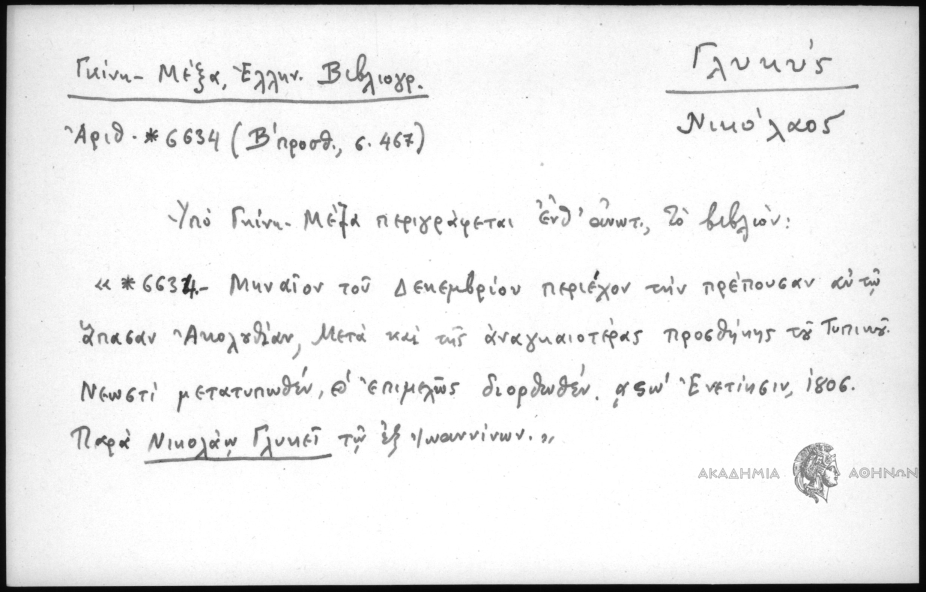 Γκίνη - Μέξα, Ἑλλην. Βιβλιογρ.
Γλυκύς
Νικόλαος
Ἀριθ. *6634 (Β΄προσθ., σ. 467)
Ὑπό Γκίνη - Μέξα περιγράφεται ἐνθ' ἀνωτ., τὸ βιβλίον:
« *6634.- Μηναῖον τοῦ Δεκεμβρίου περιέχον τὴν πρέπουσαν αὐτῷ
ἅπασαν Ἀκολουθίαν, Μετὰ καὶ τῆς ἀναγκαιοτέρας προσθήκης τοῦ Τυπικοῦ.
Νεωστὶ μετατυπωθέν, ἐπιμελῶς διορθωθέν. ͵αωϛ΄ Ἐνετίησιν, 1806.
Παρὰ Νικολάῳ Γλυκεῖ τῷ ἐξ Ἰωαννίνων.»
ΑΚΑΔΗΜΙΑ ΑΘΗΝΩΝ